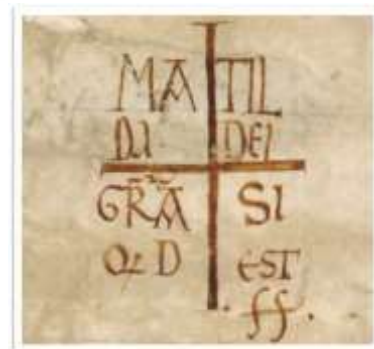 MA TIL
DA DEI
GRA SI
QD EST
ss.